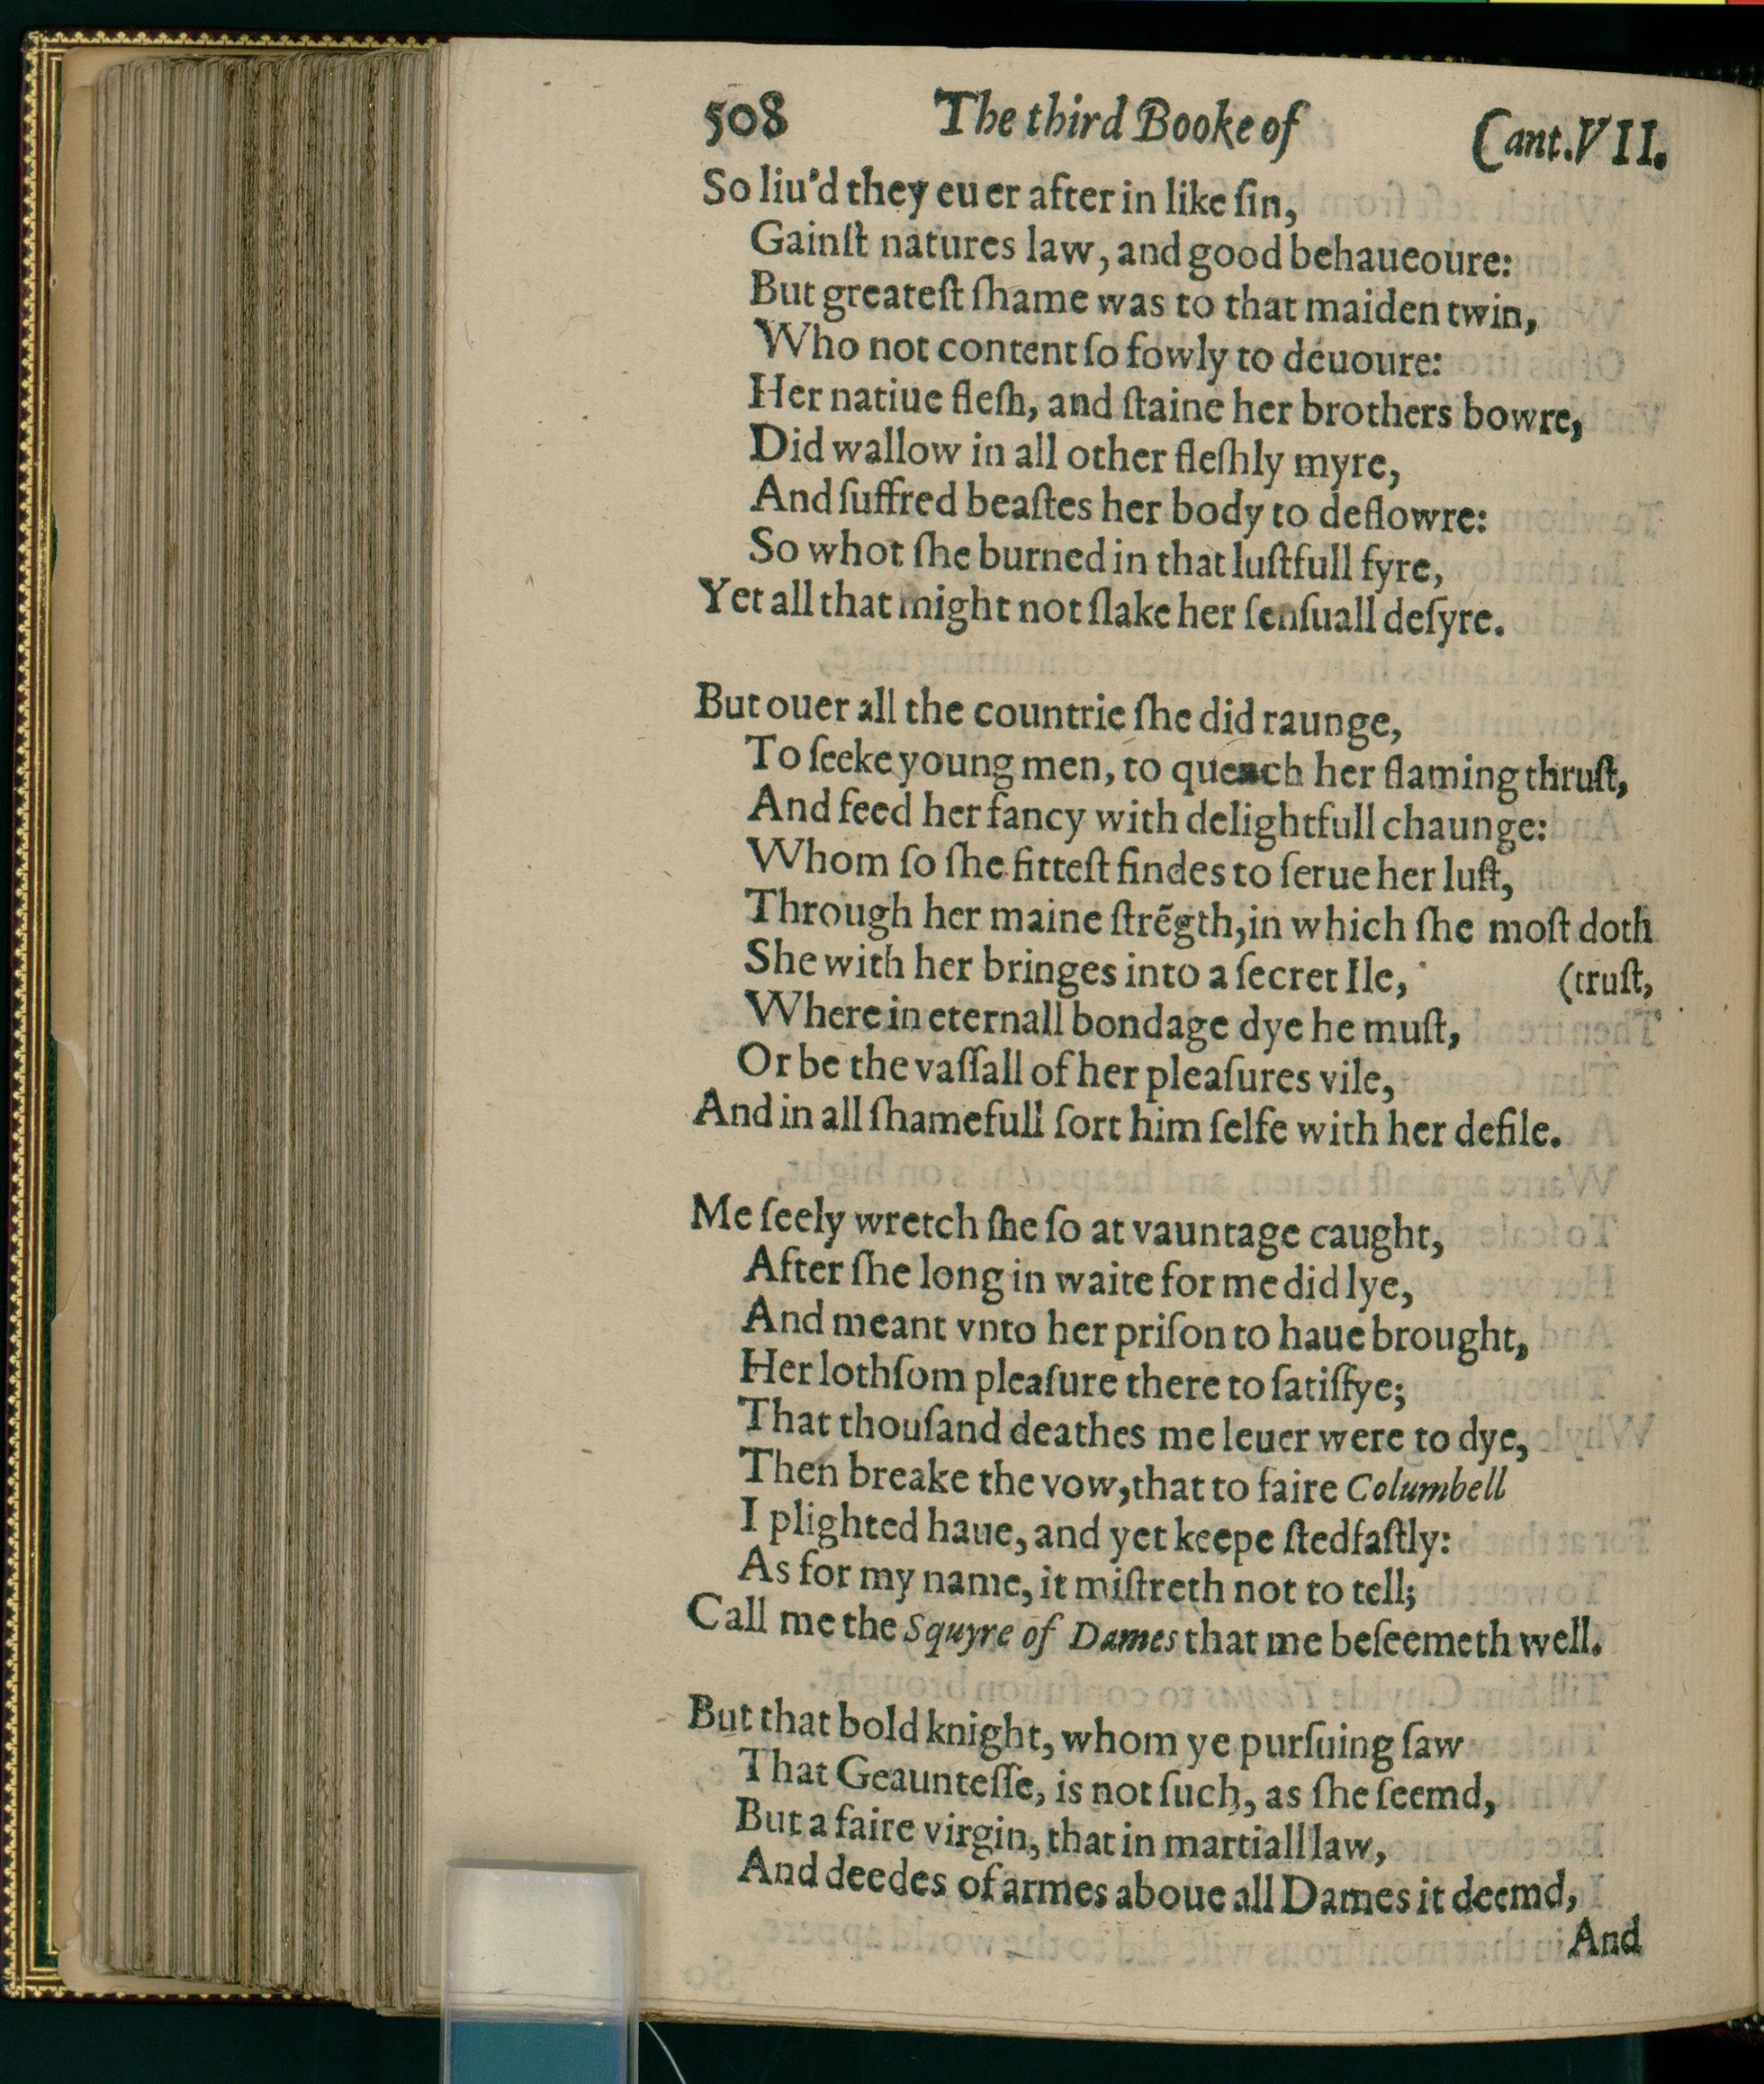 508 The third Booke of Cant.VII.
So liu'd they euer after in like ſin,
Gainſt natures law, and good behaueoure:
But greateſt ſhame was to that maiden twin,
Who not content ſo fowly to deuoure:
Her natiue fleſh, and ſtaine her brothers bowre,
Did wallow in all other fleſhly myre,
And ſuffred beaſtes her body to deflowre:
So whot ſhe burned in that luſtfull fyre,
Yet all that might not ſlake her ſenſuall deſyre.
But ouer all the countrie ſhe did raunge,
To ſeeke young men, to quench her flaming thruſt,
And feed her fancy with delightfull chaunge:
Whom ſo ſhe fitteſt findes to ſerue her luſt,
Through her maine ſtrẽgth, in which ſhe moſt doth
She with her bringes into a ſecret Ile, (truſt,
Where in eternall bondage dye he muſt,
Or be the vaſſall of her pleaſures vile,
And in all ſhamefull ſort him ſelfe with her defile.
Me ſeely wretch ſhe ſo at vauntage caught,
After ſhe long in waite for me did lye,
And meant vnto her priſon to haue brought,
Her lothſom pleaſure there to ſatiſfye;
That thouſand deathes me leuer were to dye,
Then breake the vow, that to faire Columbell
I plighted haue, and yet keepe ſtedfaſtly:
As for my name, it miſtreth not to tell;
Call me the Squyre of Dames that me beſeemeth well.
But that bold knight, whom ye purſuing ſaw
That Geaunteſſe, is not ſuch, as ſhe ſeemd,
But a faire virgin, that in martiall law,
And deedes of armes aboue all Dames it deemd,
And